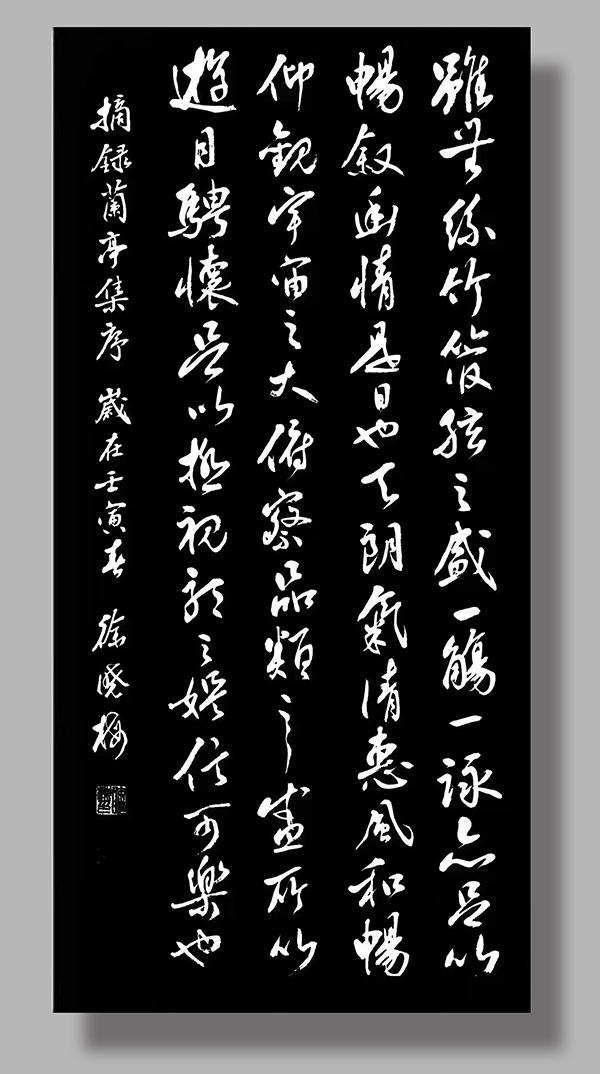 雖無絲竹管弦之盛一觴一詠亦足以
暢敘幽情是日也天朗氣清惠風和暢
仰觀宇宙之大俯察品類之盛所以
遊目騁懷足以極視聽之娛信可樂也
摘録蘭亭集序 歲在壬寅春 徐晓梅